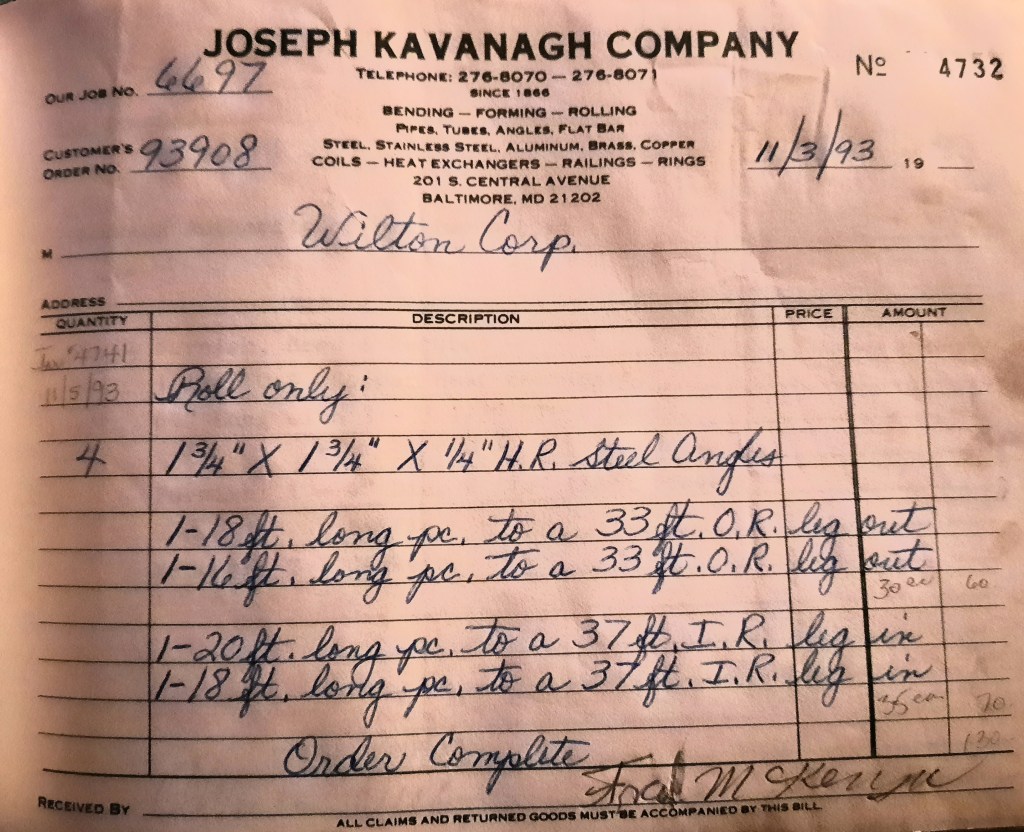 JOSEPH KAVANAGH COMPANY
TELEPHONE: 276-8070 — 276-8071
Nº 4732
OUR JOB NO. 6697
SINCE 1866
BENDING — FORMING — ROLLING
PIPES, TUBES, ANGLES, FLAT BAR
CUSTOMER'S ORDER NO. 93908
STEEL, STAINLESS STEEL, ALUMINUM, BRASS, COPPER
COILS — HEAT EXCHANGERS — RAILINGS — RINGS
11/3/93 19
201 S. CENTRAL AVENUE
BALTIMORE, MD 21202
M Wilton Corp.
ADDRESS
QUANTITY DESCRIPTION PRICE AMOUNT
4741
11/5/93 Roll only:
4 1 3/4" X 1 3/4" X 1/4" H.R. Steel Angles
1-18 ft. long pc. to a 33 ft. O.R. leg out
1-16 ft. long pc. to a 33 ft. O.R. leg out
30 ea 60
1-20 ft. long pc. to a 37 ft. I.R. leg in
1-18 ft. long pc. to a 37 ft. I.R. leg in
35 ea 70
130
Order Complete
RECEIVED BY
ALL CLAIMS AND RETURNED GOODS MUST BE ACCOMPANIED BY THIS BILL